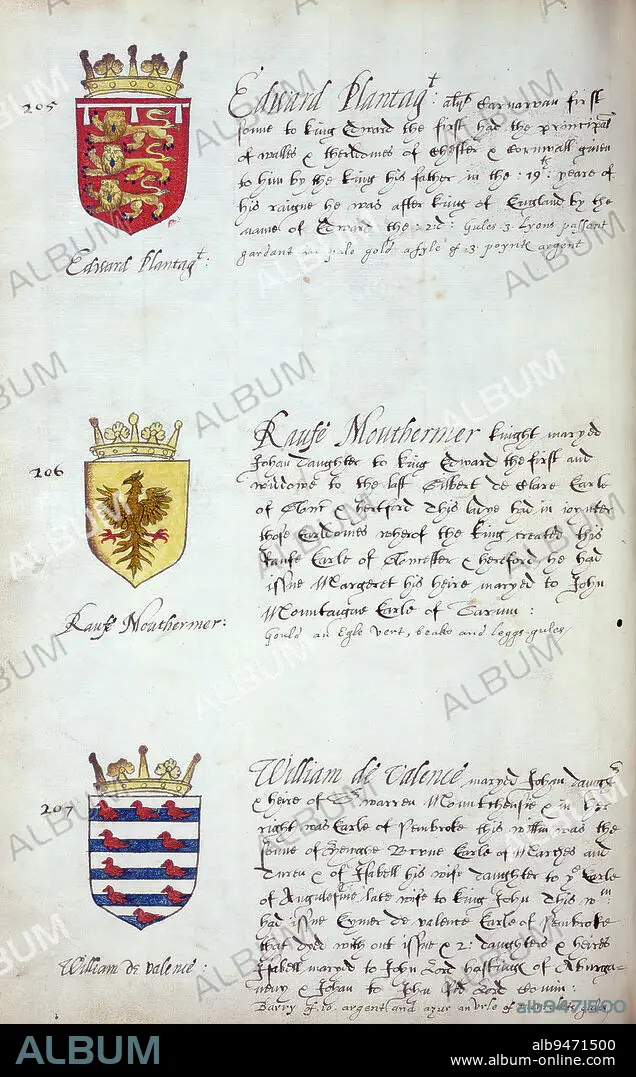 205
Edward Plantagt: alijs Carnarvan first
sonne to king Edward the first had the principat
of walles & therldomes of Chester & Cornwall given
to him by the king his father in the : 19th: yeare of
his raigne he was after king of England by the
name of Edward the : 2d: Gules 3 Lyons passant
gardant in pale gold a fyle of 3 poynts argent
Edward Plantagt:
206
Raufe Mouthermer knight maryed
Johan daughter to king Edward the first and
widdowe to the last Gilbert de Clare Earle
of Glouc & hertford this ladye had in joynter
those Earldomes wherof the king created this
Raufe Earle of Glocester & hertford he had
issue Margeret his heire maryed to John
Mountaigue Earle of Sarum :
Gould an Egle vert, beake and leggs gules
Raufe Mouthermer:
207
William de Valence maryed Johan daughr
& heire of warren Mountchensie & in her
right was Earle of Pembroke this was the
sonne of Hewghe Brune Earle of Marches and
& of Isabell his wife daughter to ye Earle
of Angolesme late wife to king John this wm
had issue Eymer de valence Earle of Pembroke
that dyed with out issue & 2: daughters & heires
Isabell maryed to John Lord hastings of Aburga-
veny & Johan to John Lord Comin:
Barry of 10 argent and azur an urle of
William de valence :
ALBUM
alb9471500
ALBUM
alb9471500
www.album-online.com